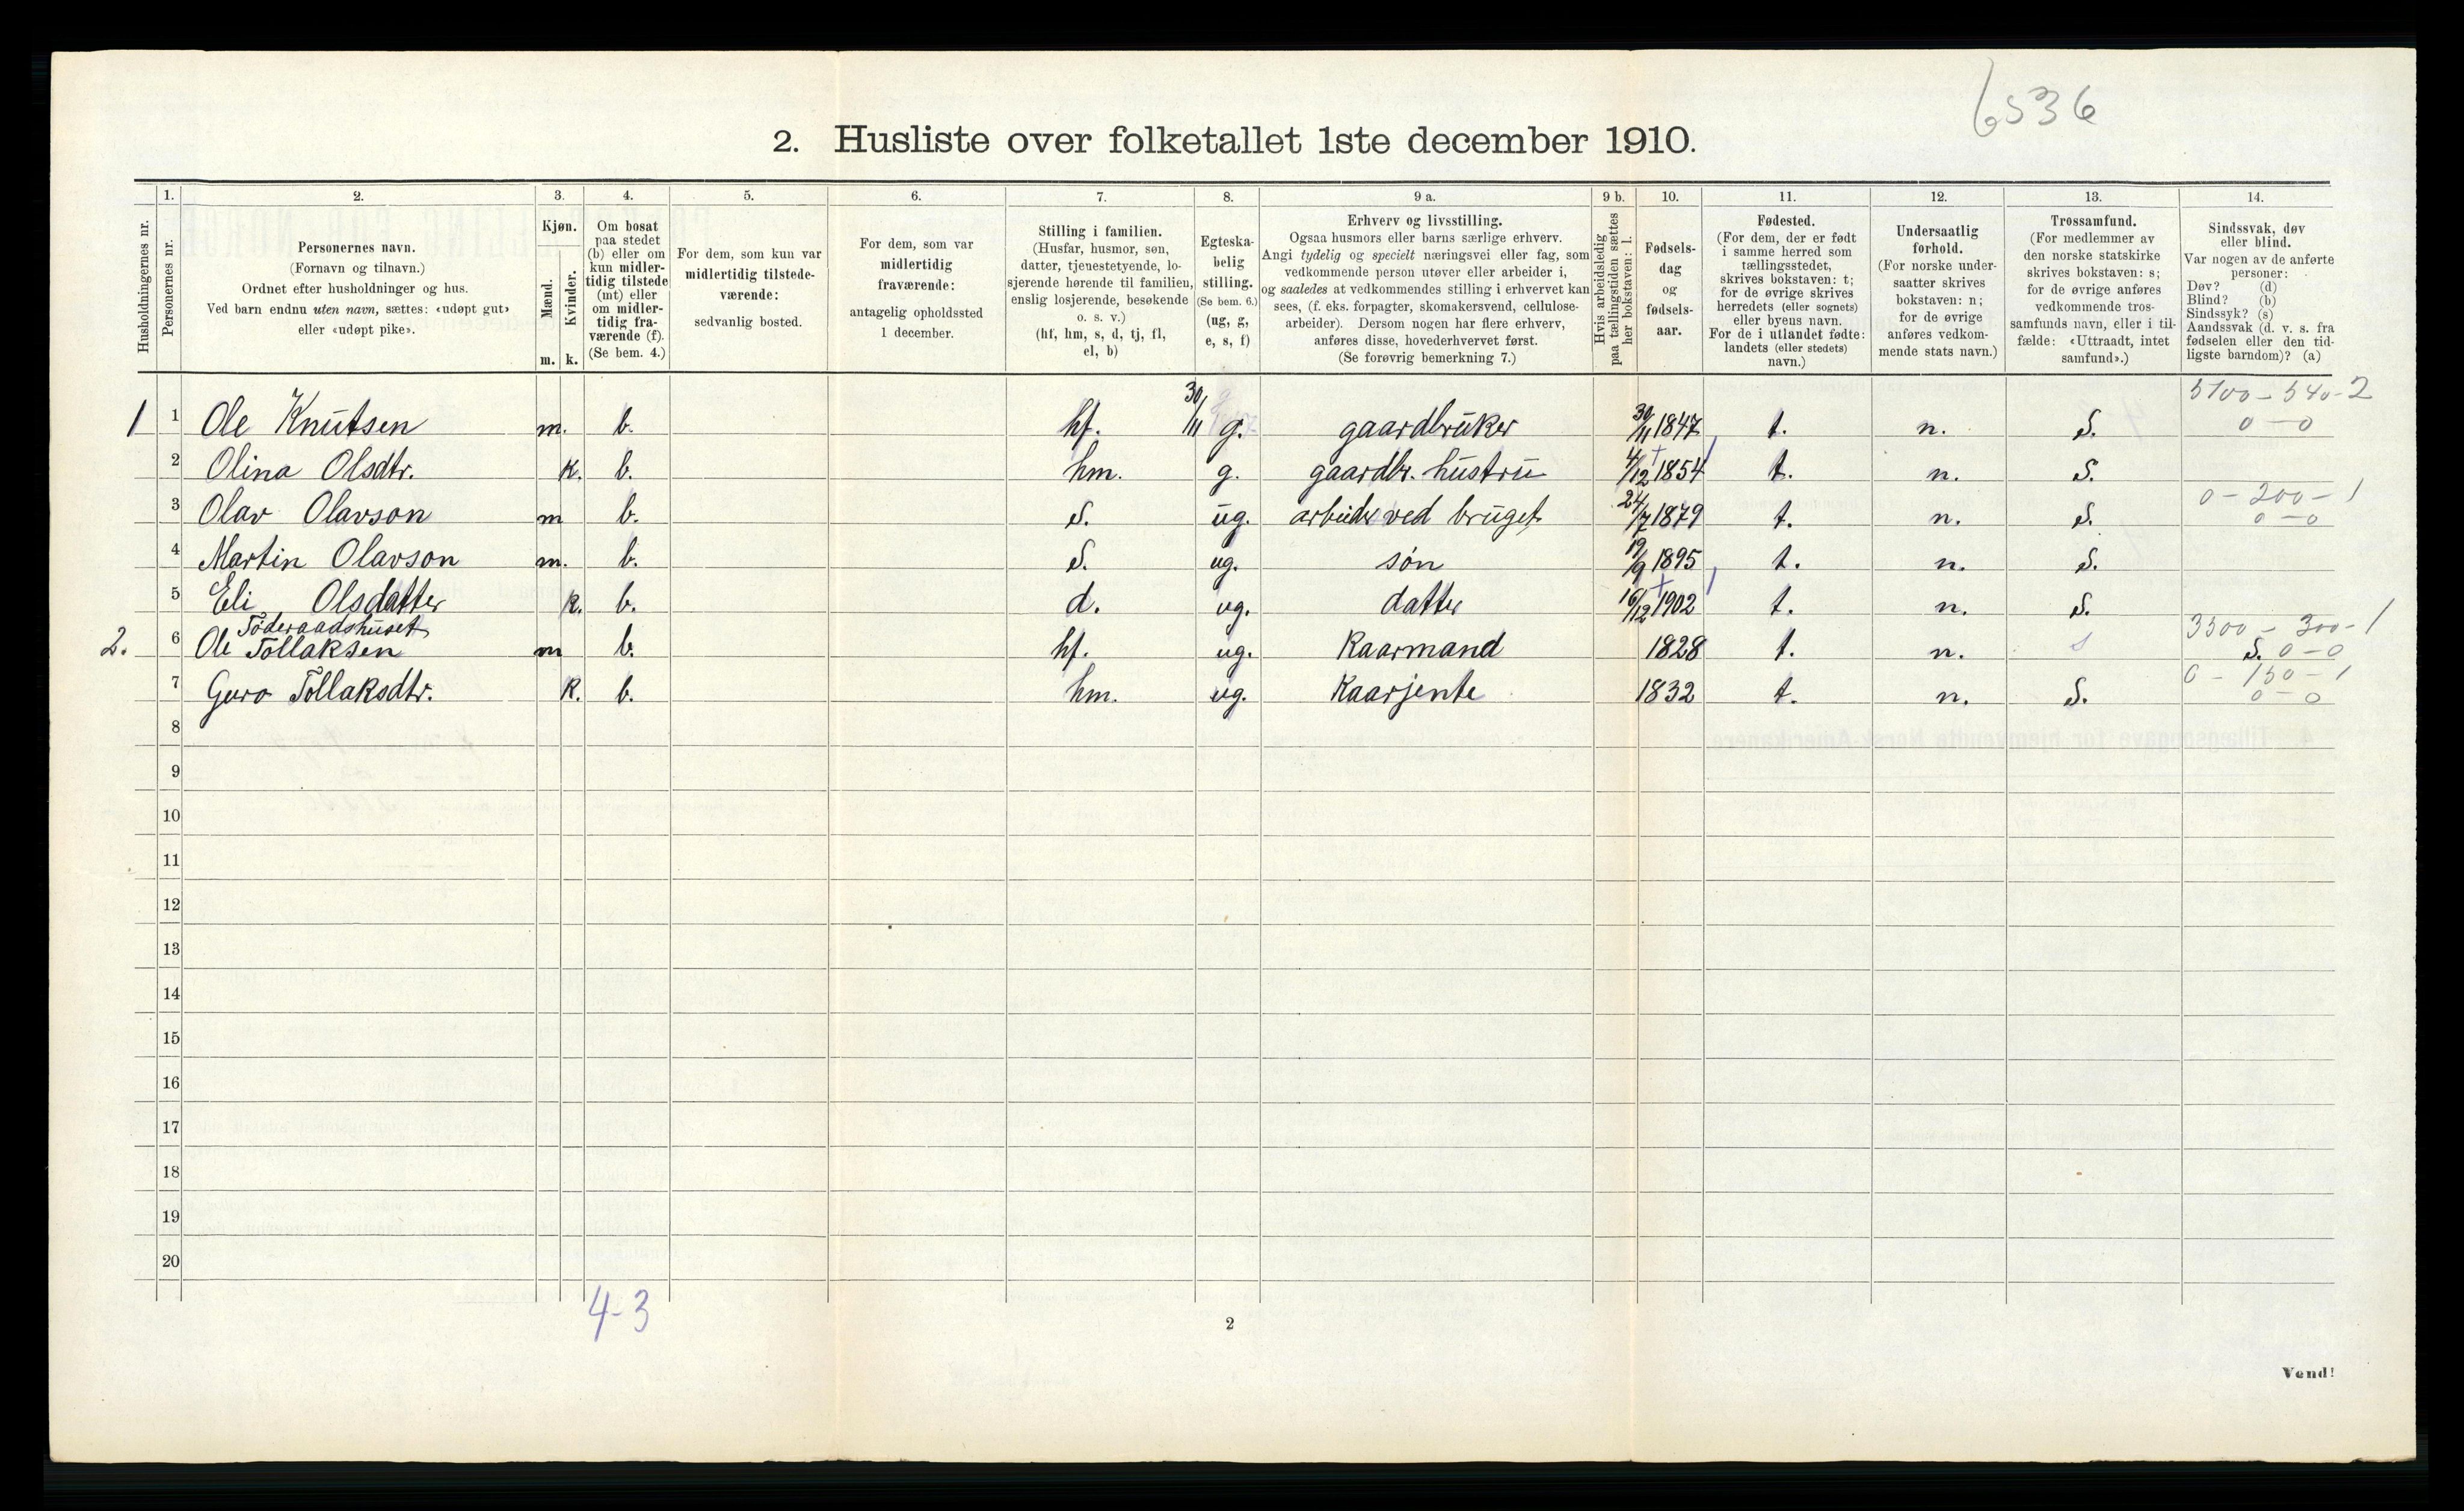 6536
2. Husliste over folketallet 1ste december 1910.
Husholdningernes nr.
1.
Personernes nr.
2.
Personernes navn.
(Fornavn og tilnavn.)
Ordnet efter husholdninger og hus.
Ved barn endnu uten navn, sættes: «udøpt gut»
eller «udøpt pike».
3.
Kjøn.
Mænd.
Kvinder.
m. k.
4.
Om bosat
paa stedet
(b) eller om
kun midler-
tidig tilstede
(mt) eller
om midler-
tidig fra-
værende (f).
(Se bem. 4.)
5.
For dem, som kun var
midlertidig tilstede-
værende:
sedvanlig bosted.
6.
For dem, som var
midlertidig
fraværende:
antagelig opholdssted
1 december.
7.
Stilling i familien.
(Husfar, husmor, søn,
datter, tjenestetyende, lo-
sjerende hørende til familien,
enslig losjerende, besøkende
o. s. v.)
(hf, hm, s, d, tj, fl,
el, b)
8.
Egteska-
belig
stilling.
(Se bem. 6.)
(ug, g,
e, s, f)
9 a.
Erhverv og livsstilling.
Ogsaa husmors eller barns særlige erhverv.
Angi tydelig og specielt næringsvei eller fag, som
vedkommende person utøver eller arbeider i,
og saaledes at vedkommendes stilling i erhvervet kan
sees, (f. eks. forpagter, skomakersvend, cellulose-
arbeider). Dersom nogen har flere erhverv,
anføres disse, hovederhvervet først.
(Se forøvrig bemerkning 7.)
9 b.
Hvis arbeidsledig
paa tællingstiden sættes
her bokstaven: l.
10.
Fødsels-
dag
og
fødsels-
aar.
11.
Fødested.
(For dem, der er født
i samme herred som
tællingsstedet,
skrives bokstaven: t;
for de øvrige skrives
herredets (eller sognets)
eller byens navn.
For de i utlandet fødte:
landets (eller stedets)
navn.)
12.
Undersaatlig
forhold.
(For norske under-
saatter skrives
bokstaven: n;
for de øvrige
anføres vedkom-
mende stats navn.)
13.
Trossamfund.
(For medlemmer av
den norske statskirke
skrives bokstaven: s;
for de øvrige anføres
vedkommende tros-
samfunds navn, eller i til-
fælde: «Uttraadt, intet
samfund».)
14.
Sindssvak, døv
eller blind.
Var nogen av de anførte
personer:
Døv? (d)
Blind? (b)
Sindssyk? (s)
Aandssvak (d. v. s. fra
fødselen eller den tid-
ligste barndom)? (a)
5100 - 540 - 2
1 1 Ole Knutsen m. b. hf. 30/11 g. gaardbruker 30/11 1847 t. n. S. 0 - 0
2 Olina Olsdtr. k. b. hm. g. gaardbr. hustru 4/12 1854 t. n. S.
0 - 200 - 1
3 Olav Olavson m b. S. ug. arbeide ved bruget 24/7 1879 t. n. S. 0 - 0
4 Martin Olavson m. b. S. ug. søn 19/9 1895 t. n. S.
5 Eli Olsdatter k. b. d. ug. datter 16/12 1902 t. n. S.
Föderaadshuset 3300 - 300 - 1
2. 6 Ole Tollaksen m b. hf. ug. Kaarmand 1828 t. n. s S. 0 - 0
0 - 150 - 1
7 Guro Tollaksdtr. k. b. hm. ug. Kaarjente 1832 t. n. S. 0 - 0
8
9
10
11
12
13
14
15
16
17
18
19
20
4-3
2
Vend!